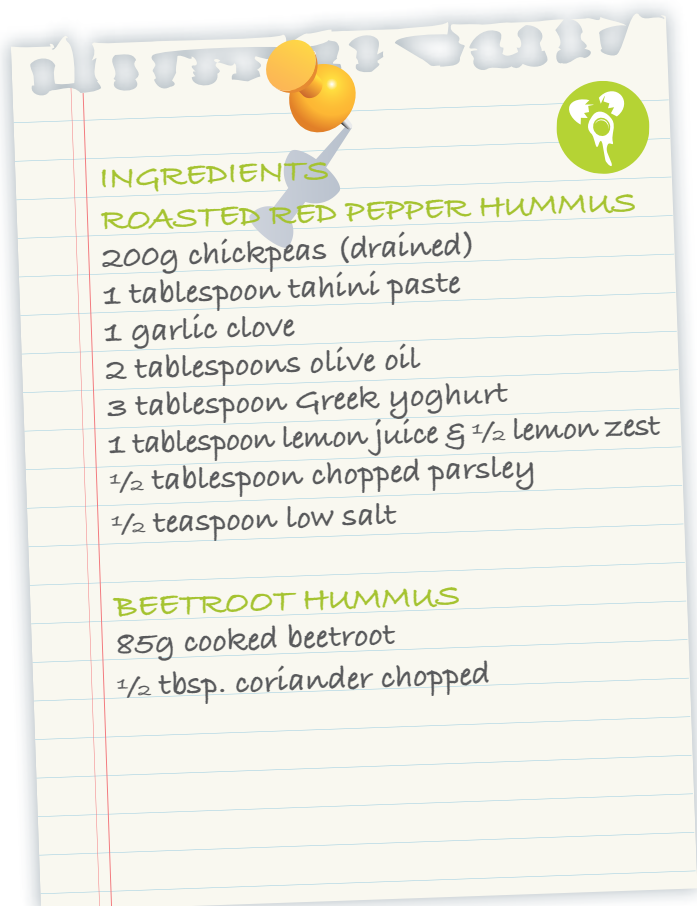 INGREDIENTS
ROASTED RED PEPPER HUMMUS
200g chickpeas (drained)
1 tablespoon tahini paste
1 garlic clove
2 tablespoons olive oil
3 tablespoon Greek yoghurt
1 tablespoon lemon juice & 1/2 lemon zest
1/2 tablespoon chopped parsley
1/2 teaspoon low salt
BEETROOT HUMMUS
85g cooked beetroot
1/2 tbsp. coriander chopped